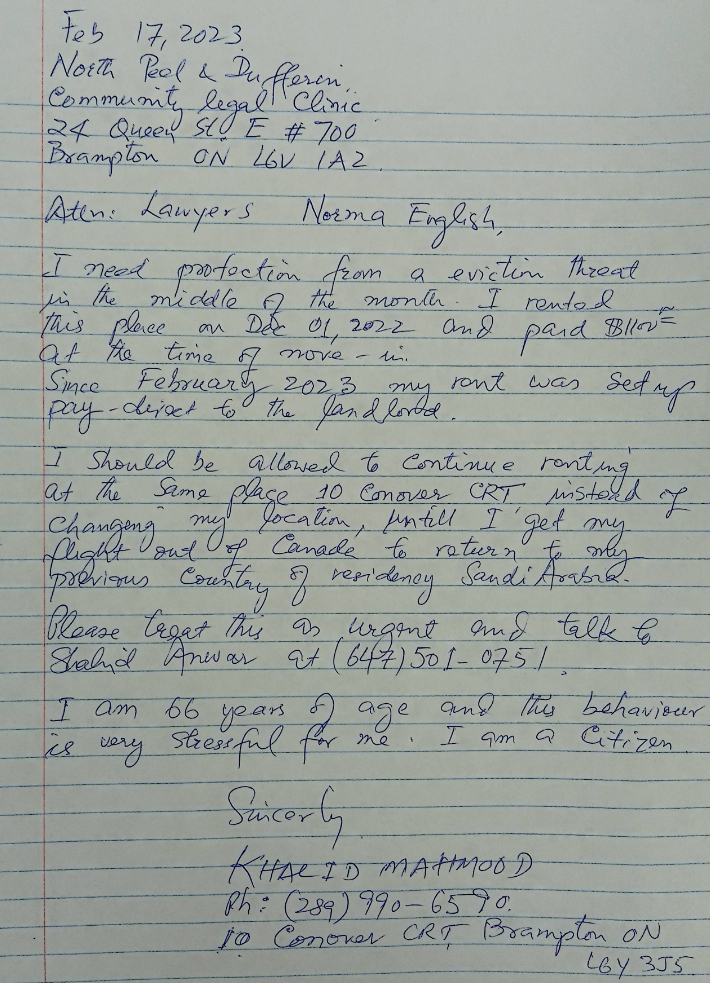 Feb 17, 2023
North Peel & Dufferin
Community legal Clinic
24 Queen St. E # 700
Brampton ON L6V 1A2.
Attn: Lawyers Norma English,
I need protection from a eviction threat
in the middle of the month. I rented
this place on Dec 01, 2022 and paid
at the time of move-in.
Since February 2023 my rent was Setup
pay-direct to the landlord.
I should be allowed to Continue renting
at the Same place 10 Conover CRT instead of
changeng my location, untill I get my
flight out of Canada to return to my
previous Country of residency Saudi Arabia.
Please treat this as urgent and talk to
Shahid Anwar at (647) 501-0751.
I am 66 years of age and this behaviour
is very stressful for me. I am a Citizen.
Sincerly
KHALID MAHMOOD
Ph: (289) 990-6590.
10 Conover CRT, Brampton ON
L6Y 3J5